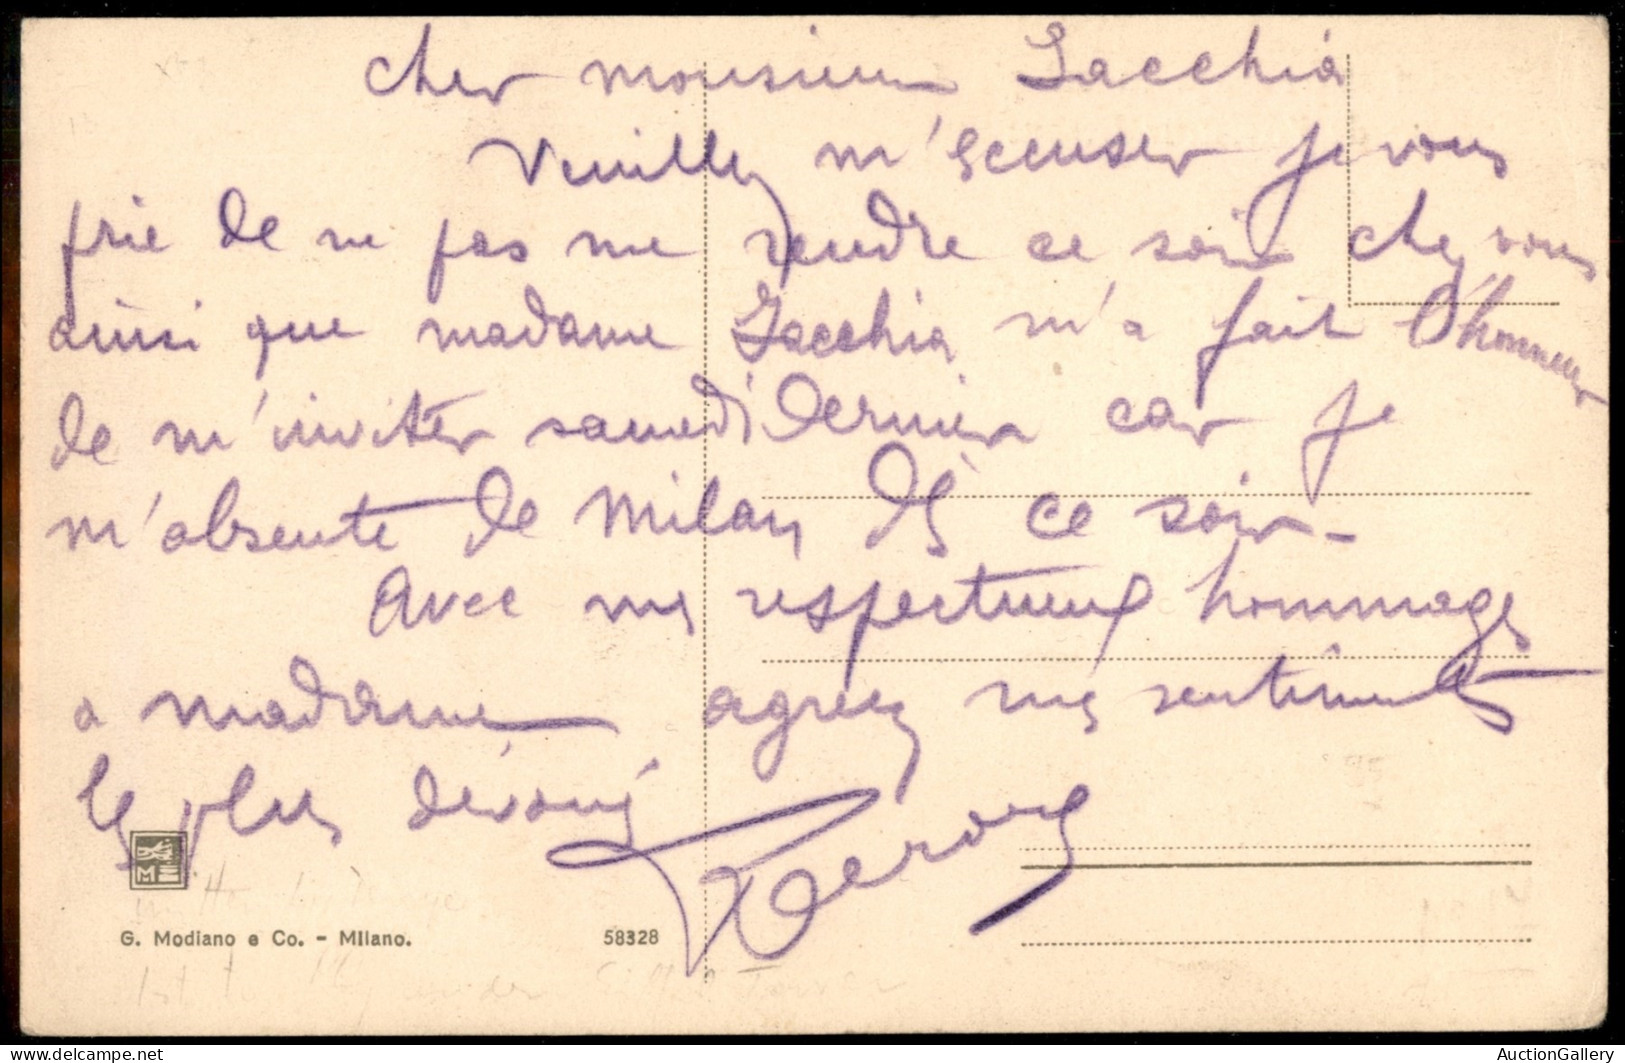 cher monsieur Sacchià
Veuillez m'excuser je vous
prie de ne pas me rendre ce soir chez vous
ainsi que madame Sacchia m'a fait l'honneur
de m'inviter samedi dernier car je
m'absente de Milan dès ce soir -
Avec mes respectueux hommages
a madame agréez mes sentiments
les plus dévoués
G. Modiano e Co. - Milano. 58328
AuctionGallery